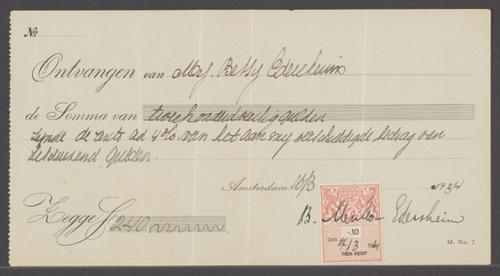 No
Ontvangen van Mej. Betsy Edersheim
de Somma van tweehonderdveertig gulden
zijnde de rente ad 4% van het aan mij verschuldigde bedrag van
zesduizend gulden.
Amsterdam 16/3 1934
Zegge ƒ 240
B. Menko-Edersheim
.10
TIEN CENT
M. No. 2